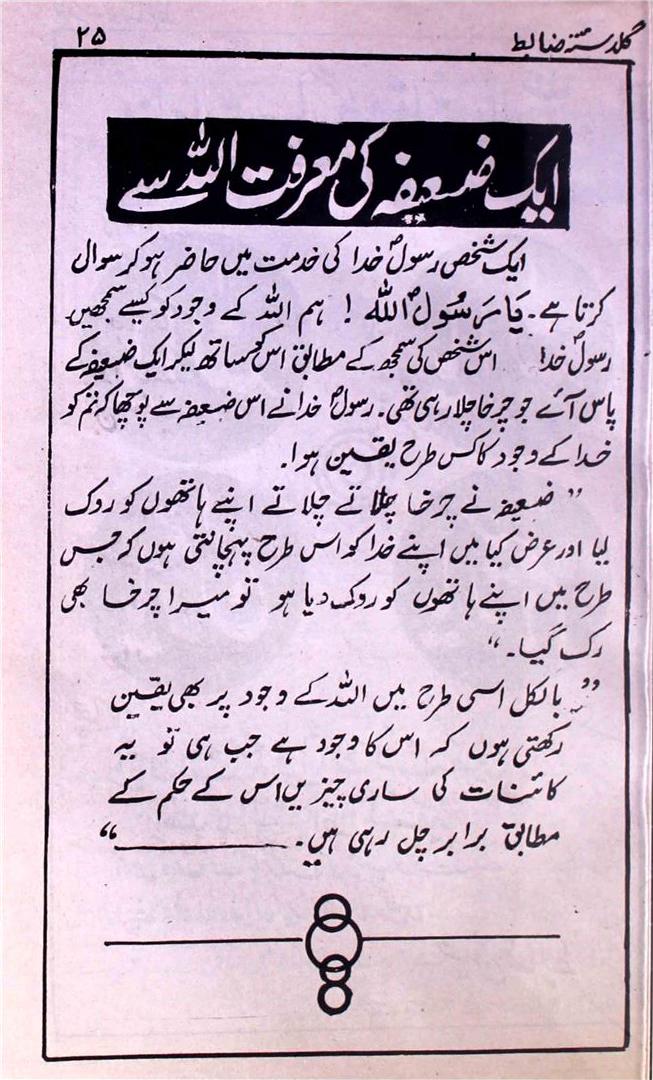 گلدستۂ ضابط ۲۵
ایک ضعیفہ کی معرفت اللہ سے
ایک شخص رسولؐ خدا کی خدمت میں حاضر ہو کر سوال
کرتا ہے۔ یَا رَسُولؐ اللہ ! ہم اللہ کے وجود کو کیسے سمجھیں
رسولؐ خدا اس شخص کی سمجھ کے مطابق اس کو ساتھ لیکر ایک ضعیفہ کے
پاس آئے جو چرخا چلا رہی تھی۔ رسولؐ خدا نے اس ضعیفہ سے پوچھا کہ تم کو
خدا کے وجود کا کس طرح یقین ہوا۔
” ضعیفہ نے چرخا چلاتے چلاتے اپنے ہاتھوں کو روک
لیا اور عرض کیا میں اپنے خدا کو اس طرح پہچانتی ہوں کہ جس
طرح میں اپنے ہاتھوں کو روک دیا ہو تو میرا چرخا بھی
رک گیا۔ “
” بالکل اسی طرح میں اللہ کے وجود پر بھی یقین
رکھتی ہوں کہ اس کا وجود ہے جب ہی تو یہ
کائنات کی ساری چیزیں اس کے حکم کے
مطابق برابر چل رہی ہیں۔ ـــــــــ “